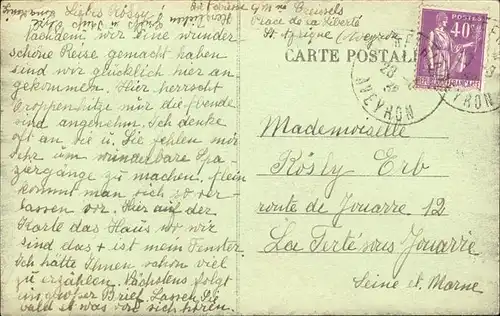 Liebes Rösly!
Nachdem wir eine wunder
schöne Reise gemacht haben
sind wir glücklich hier an
gekommen. Hier herrscht
Troppenhitze mir die fremde
sind angenehm. Ich denke
oft an Sie u. Sie fehlen mir
sehr um wunderbare Spa-
ziergänge zu machen.
kommt man sich so ver-
lassen vor. Hier auf der
Karte das Haus wo wir
sind das + ist mein Fenster.
Ich hätte Ihnen schon viel
zu erzählen. Nächstens folgt
ein großer Brief. Lassen Sie
bald etwas von sich hören.
Place de la Liberté
St Affrique (Aveyron)
CARTE POSTALE
POSTES
40c
AVEYRON
Mademoiselle
Rösly Erb
route de Jouarre 12
La Ferté sous Jouarre
Seine et Marne